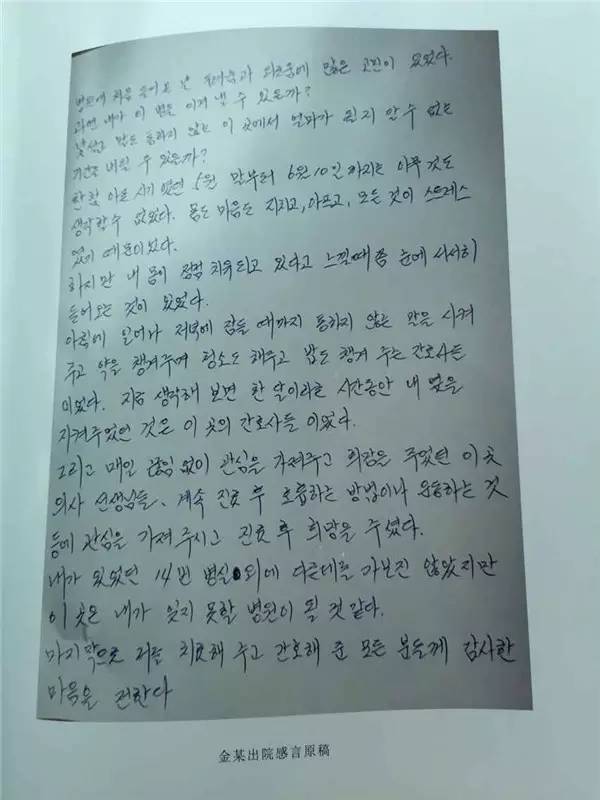 병원에 처음 들어온 날 두려움과 외로움에 많은 고민이 있었다.
과연 내가 이 병을 이겨 낼 수 있을까?
낯설고 말도 통하지 않는 이 곳에서 얼마가 될지 알 수 없는
기간을 버틸 수 있을까?
한참 아픈 시기 였던 5월 말부터 6월 10일까지는 아무 것도
생각할 수 없었다. 몸도 마음도 지치고, 아프고, 모든 것이 스트레스
였기 때문이었다.
하지만 내 몸이 점점 치유되고 있다고 느낄때쯤 눈에 서서히
들어오는 것이 있었다.
아침에 일어나 저녁에 잠들 때까지 통하지 않는 말을 시켜
주고 약을 챙겨주며 청소도 해주고 밥도 챙겨 주는 간호사들
이었다. 지금 생각해 보면 한 달이라는 시간동안 내 옆을
지켜주었던 것은 이 곳의 간호사들 이었다.
그리고 매일 끊임 없이 관심을 가져주고 희망을 주었던 이 곳
의사 선생님들, 계속 진료 후 호흡하는 방법이나 운동하는 것
등에 관심을 가져 주시고 진료 후 희망을 주셨다.
내가 있었던 14번 병실 외에 다른데를 가보진 않았지만
이 곳은 내가 잊지 못할 병원이 될 것 같다.
마지막으로 저를 치료해 주고 간호해 준 모든 분들께 감사한
마음을 전한다
金某出院感言原稿